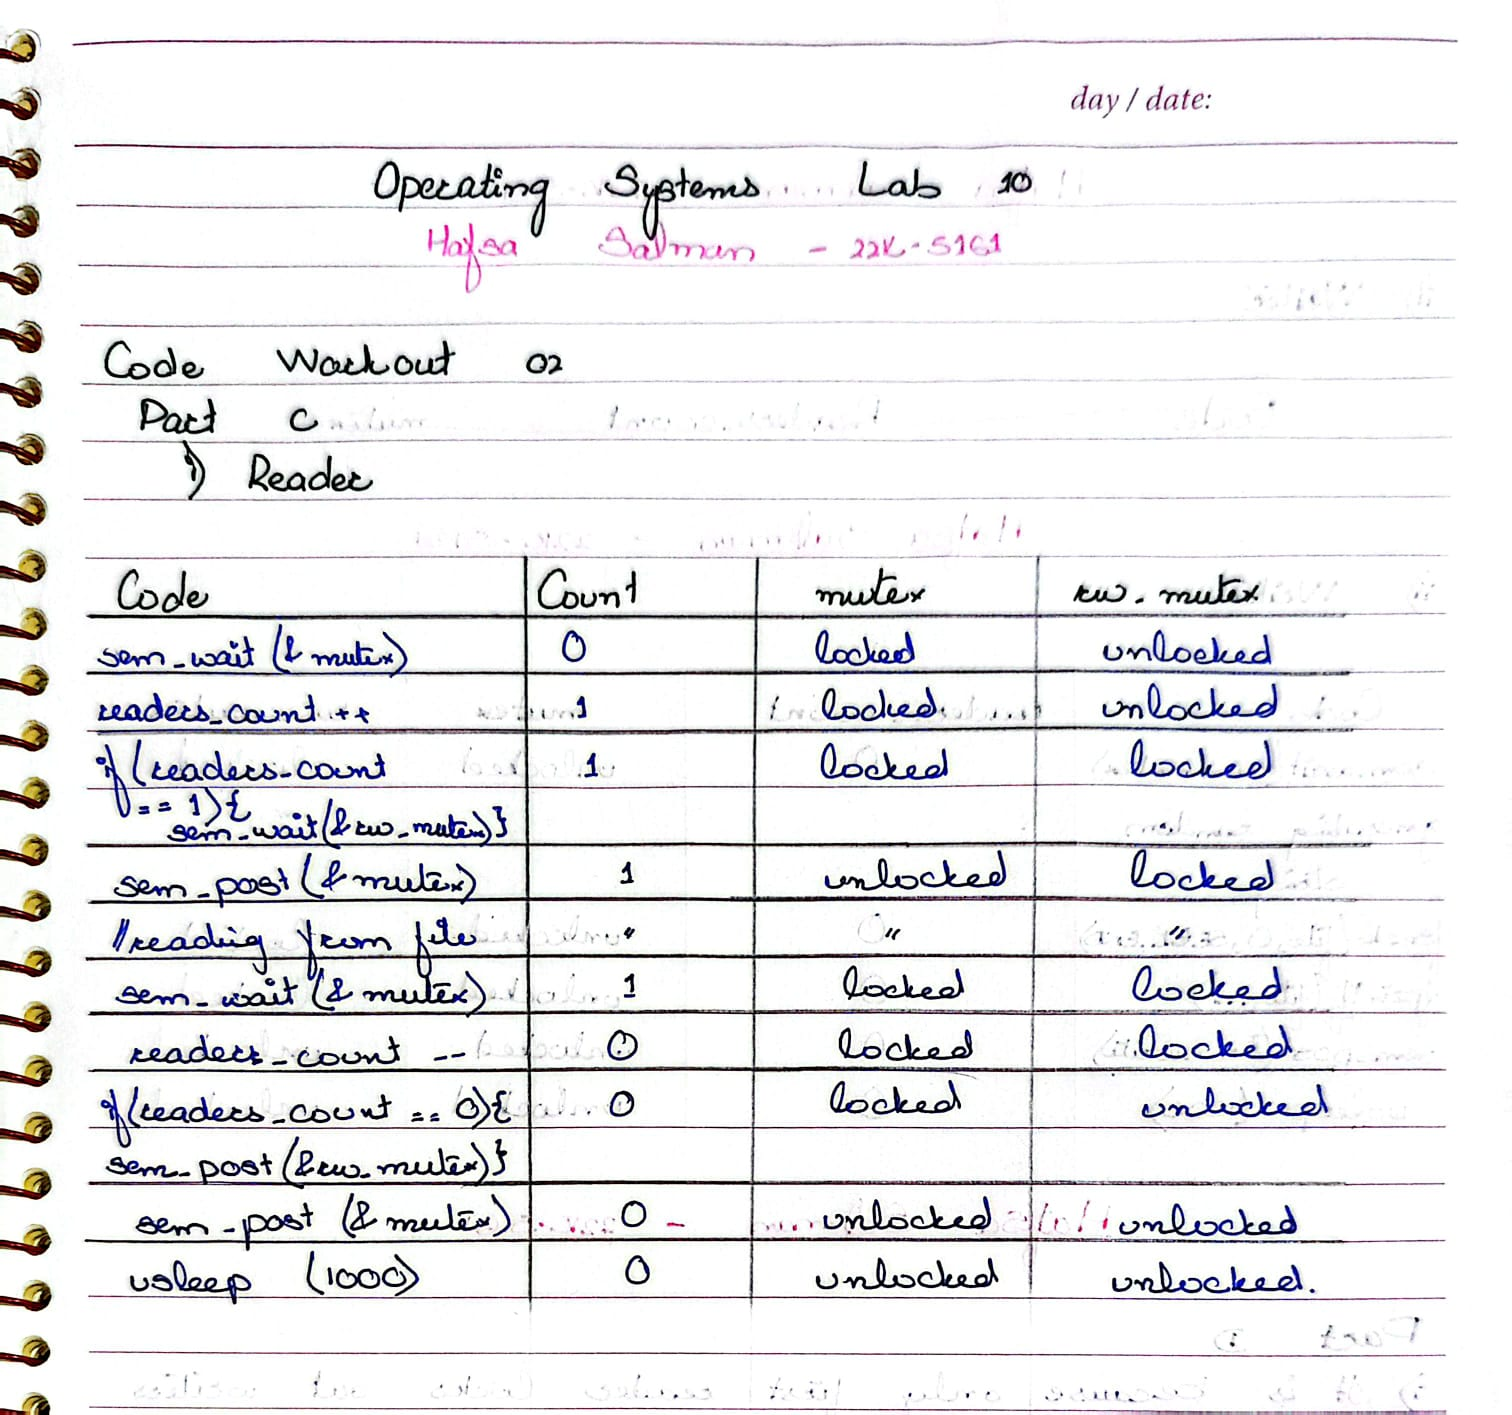 day / date:
Operating Systems Lab 10
Hafsa Salman - 22K-5161
Code Workout 02
Part C
i) Reader
Code Count mutex rw_mutex
sem_wait (& mutex) 0 locked unlocked
readers_count ++ 1 locked unlocked
if (readers_count 1 locked locked
== 1) {
sem_wait(& rw_mutex) }
sem_post (& mutex) 1 unlocked locked
//reading from file " " "
sem_wait (& mutex) 1 locked locked
readers_count -- 0 locked locked
if (readers_count == 0) { 0 locked unlocked
sem_post (& rw_mutex) }
sem_post (& mutex) 0 unlocked unlocked
usleep (1000) 0 unlocked unlocked.